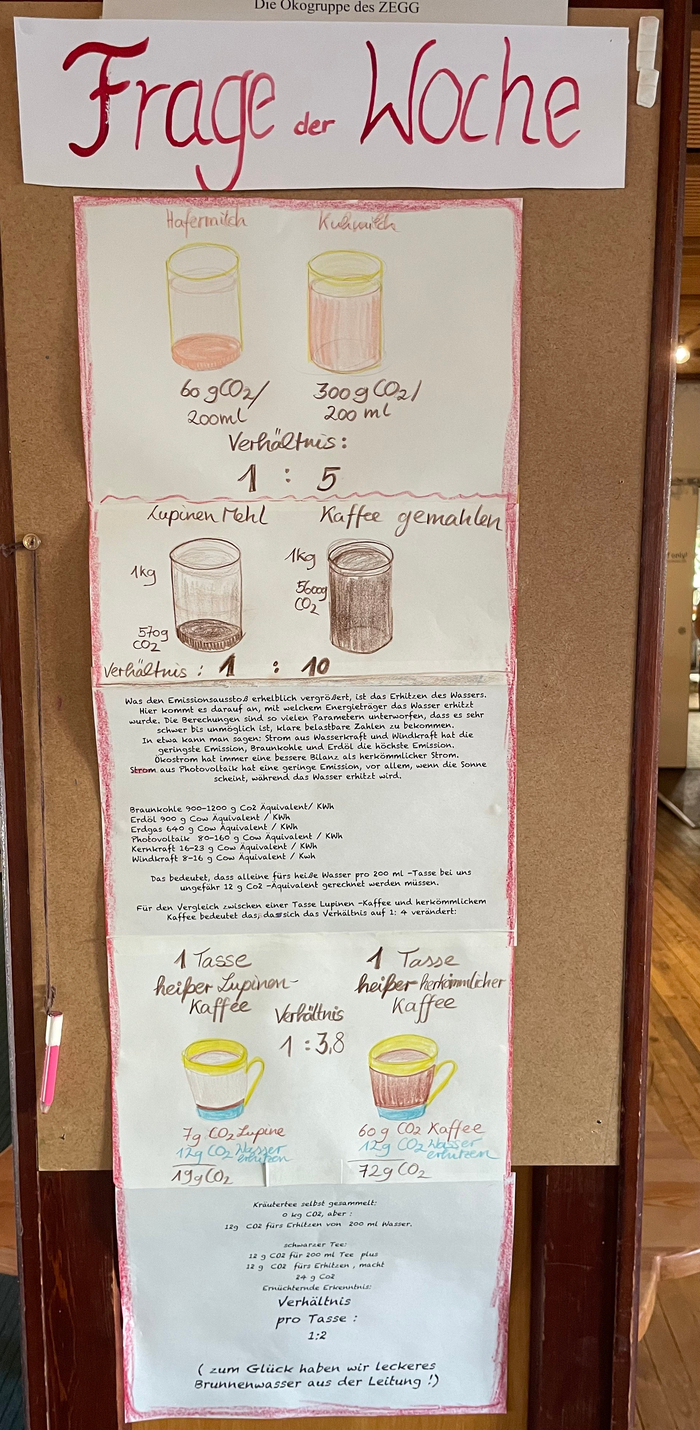 Die Ökogruppe des ZEGG
Frage der Woche
Hafermilch Kuhmilch
60 gCO2/ 300 g CO2/
200ml 200 ml
Verhältnis:
1 : 5
Lupinen Mehl Kaffee gemahlen
1kg 1kg
5600g
CO2
570g
CO2
Verhältnis : 1 : 10
Was den Emissionsausstoß erheblich vergrößert, ist das Erhitzen des Wassers.
Hier kommt es darauf an, mit welchem Energieträger das Wasser erhitzt
wurde. Die Berechungen sind so vielen Parametern unterworfen, dass es sehr
schwer bis unmöglich ist, klare belastbare Zahlen zu bekommen.
In etwa kann man sagen: Strom aus Wasserkraft und Windkraft hat die
geringste Emission, Braunkohle und Erdöl die höchste Emission.
Ökostrom hat immer eine bessere Bilanz als herkömmlicher Strom.
Strom aus Photovoltaik hat eine geringe Emission, vor allem, wenn die Sonne
scheint, während das Wasser erhitzt wird.
Braunkohle 900-1200 g Co2 Äquivalent/ KWh
Erdöl 900 g Cow Äquivalent / KWh
Erdgas 640 g Cow Äquivalent / KWh
Photovoltaik 80-160 g Cow Äquivalent / KWh
Kernkraft 16-23 g Cow Äquivalent / KWh
Windkraft 8-16 g Cow Äquivalent / Kwh
Das bedeutet, dass alleine fürs heiße Wasser pro 200 ml -Tasse bei uns
ungefähr 12 g Co2 -Äquivalent gerechnet werden müssen.
Für den Vergleich zwischen einer Tasse Lupinen -Kaffee und herkömmlichem
Kaffee bedeutet das, dass sich das Verhältnis auf 1: 4 verändert:
1 Tasse 1 Tasse
heißer Lupinen- heißer herkömmlicher
Kaffee Kaffee
Verhältnis
1 : 3,8
7g CO2 Lupine 60g CO2 Kaffee
12g CO2 Wasser 12g CO2 Wasser
erhitzen erhitzen
19g CO2 72g CO2
Kräutertee selbst gesammelt:
0 kg CO2, aber :
12g CO2 fürs Erhitzen von 200 ml Wasser.
schwarzer Tee:
12 g CO2 für 200 ml Tee plus
12 g CO2 fürs Erhitzen , macht
24 g Co2
Ernüchternde Erkenntnis:
Verhältnis
pro Tasse :
1:2
( zum Glück haben wir leckeres
Brunnenwasser aus der Leitung !)